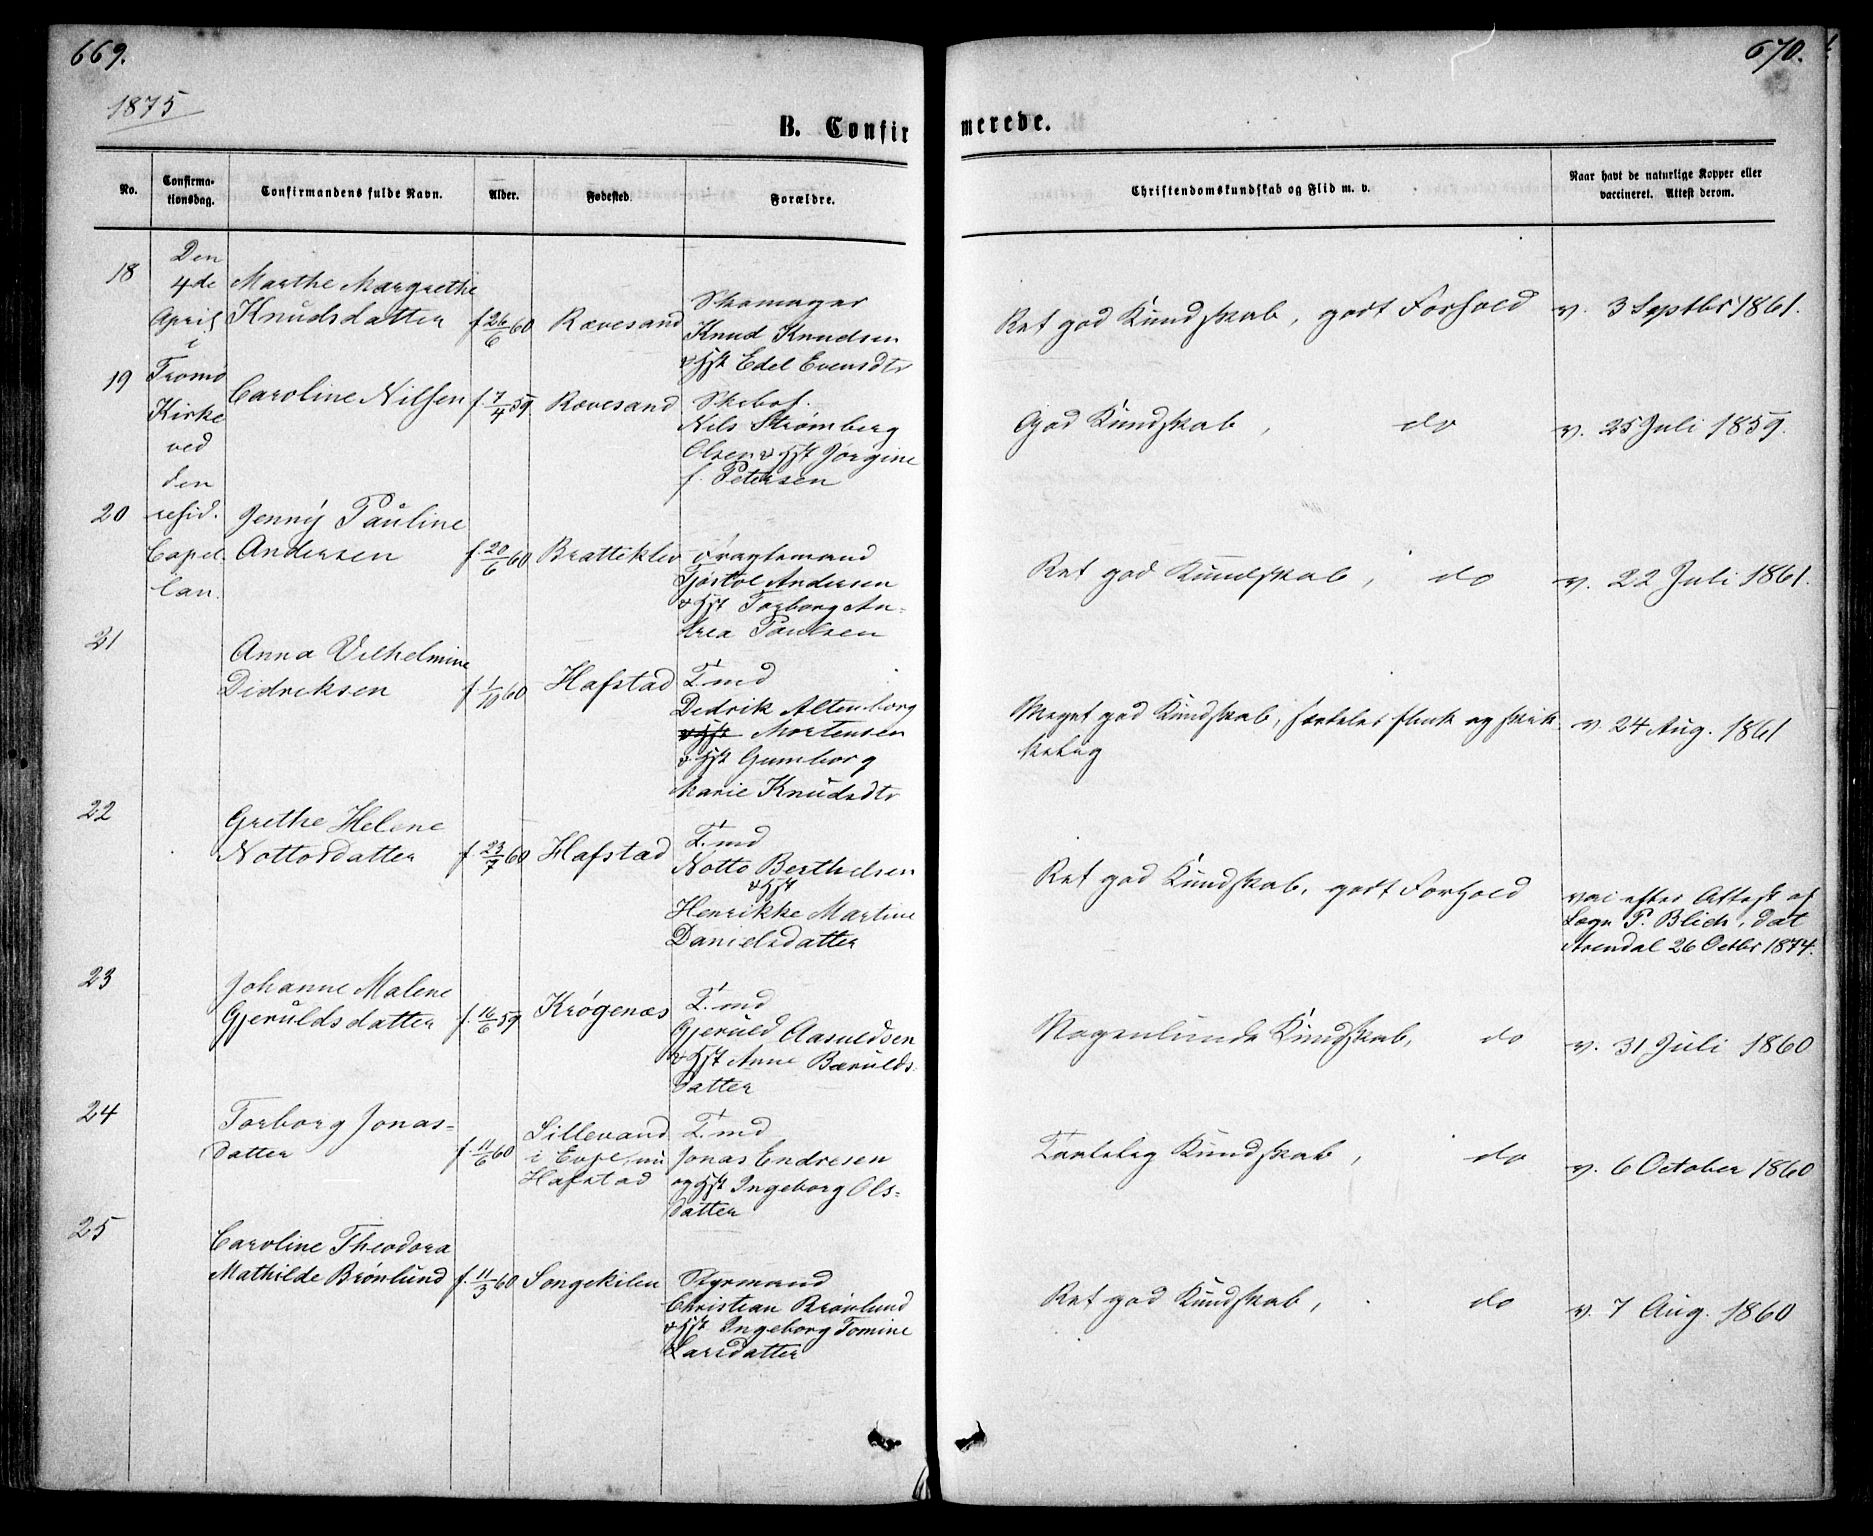 669.
670.
1875
B. Confirmerede.
No.
Confirma-
tionsdag.
Confirmandens fulde Navn.
Alder.
Fødested.
Forældre.
Christendomskundskab og Flid m. v.
Naar havt de naturlige Kopper eller
vaccineret. Attest derom.
Den
4de
April
i
Tromø
Kirke
ved
den
resid.
Capel
lan.
18
Marthe Margrethe
Knudsdatter
f. 26/6 60
Rævesand
Skomager
Knud Knudsen
& Hst Edel Evensdtr
Ret god Kundskab, godt Forhold
v. 3 Septbr 1861.
19
Caroline Nilsen
f. 7/4 59
Rævesand
Skibsf.
Nils Strømberg
Olsen & Hst Jørgine
f. Petersen
God Kundskab, do
v. 25 Juli 1859.
20
Jenny Pauline
Andersen
f. 20/6 60
Brattiklev
Fragtemand
Tjøstol Andersen
& Hst Torborg An-
drea Paulsen
Ret god Kundskab, do
v. 22 Juli 1861.
21
Anna Vilhelmine
Didriksen
f. 1/10 60
Hafstad
T. md
Dedrik Altenborg
& Hst Mortensen
& Hst Gumborg
Marie Knudsdtr
Meget god Kundskab, særdeles flink og skik-
kelig
v. 24 Aug. 1861
22
Grethe Helene
Nottosdatter
f. 23/7 60
Hafstad
T. md
Notto Berthelsen
& Hst
Henrikke Martine
Danielsdatter
Ret god Kundskab, godt Forhold
vac efter Attest af
Læge P. Blich, dat
Arendal 26 Octbr 1874.
23
Johanne Malene
Gjeruldsdatter
f. 16/6 59
Krøgenæs
T. md
Gjeruld Aasuldsen
& Hst Anne Bærulds-
datter
Nogenlunde Kundskab, do
v. 31 Juli 1860
24
Torborg Jonas-
datter
f. 11/6 60
Lillevand
i Evje, nu
Hafstad
T. md
Jonas Endresen
og Hst Ingeborg Ols-
datter
Taalelig Kundskab, do
v. 6 October 1860
25
Caroline Theodora
Mathilde Brønlund
f. 11/3 60
Songekilen
Styrmand
Christian Brønlund
& Hst Ingeborg Tomine
Larsdatter
Ret god Kundskab, do
v. 7 Aug. 1860